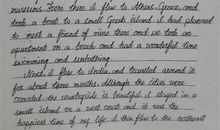 museums. From there I flew to Athens, Greece, and
took a boat to a small Greek island. I had planned
to meet a friend of mine there and we took an
apartment on a beach and had a wonderful time
swimming and sunbathing.
Next, I flew to India, and traveled around it
for about three months. Although the cities were
crowded, the countryside is beautiful. I stayed in a
small island on a west coast and it was the
happiest time of my life. I then flew to the northeast